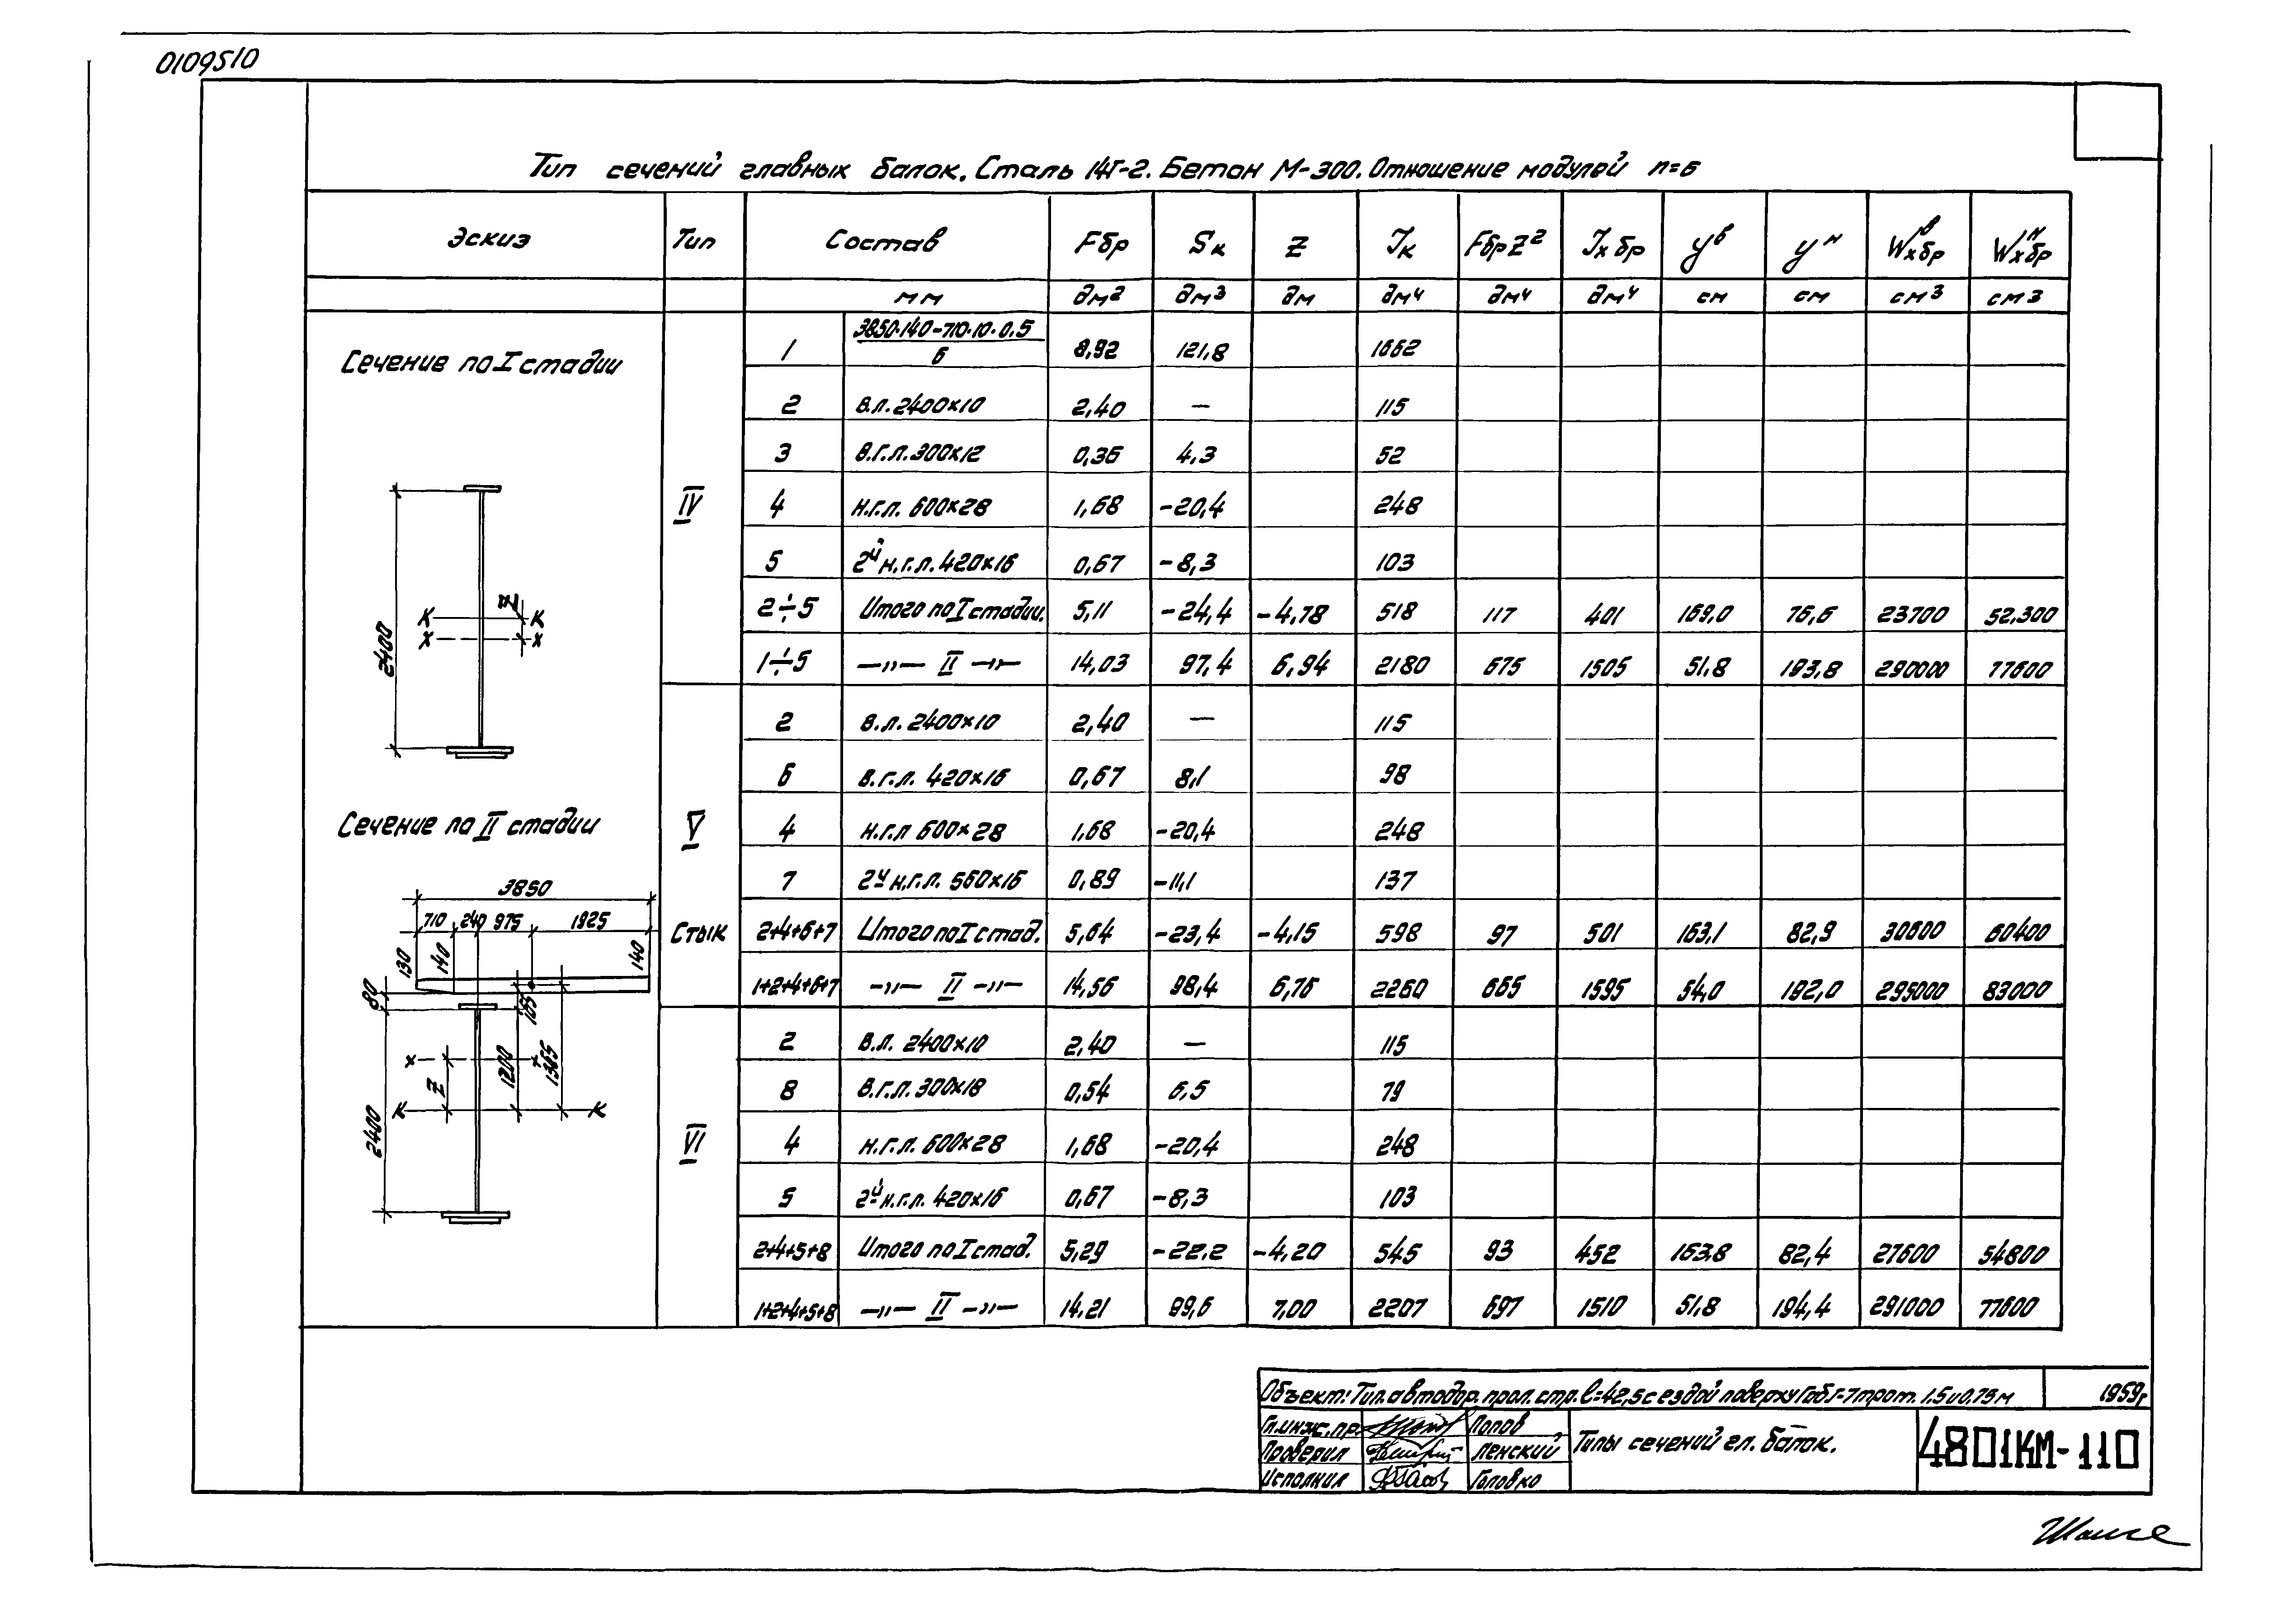 0109510
Тип сечений главных балок. Сталь 14Г-2. Бетон М-300. Отношение модулей n=6
Эскиз Тип Состав Fбр Sк Z Jк FбрZ² Jх бр yᵇ yᴴ Wᵇхбр Wᴴхбр
мм дм² дм³ дм дм⁴ дм⁴ дм⁴ см см см³ см³
Сечение по I стадии
2400
К К
Z
х х
Сечение по II стадии
3850
710 240 975 1925
130 140 140
80
165
х х
Z 1200 1365
К К
2400
IV
1 3850·140-710·10·0.5 / 6 8,92 121,8 1662
2 В.л. 2400×10 2,40 — 115
3 В.г.л. 300×12 0,36 4,3 52
4 Н.г.л. 600×28 1,68 -20,4 248
5 2й н.г.л. 420×16 0,67 -8,3 103
2÷5 Итого по I стадии. 5,11 -24,4 -4,78 518 117 401 169,0 76,6 23700 52,300
1÷5 —〃— II —〃— 14,03 97,4 6,94 2180 675 1505 51,8 193,8 290000 77600
V
Стык
2 В.л. 2400×10 2,40 — 115
6 В.г.л. 420×16 0,67 8,1 98
4 Н.г.л 600×28 1,68 -20,4 248
7 2й н.г.л. 560×16 0,89 -11,1 137
2+4+6+7 Итого по I стад. 5,64 -23,4 -4,15 598 97 501 163,1 82,9 30600 60400
1+2+4+6+7 —〃— II —〃— 14,56 98,4 6,76 2260 665 1595 54,0 192,0 295000 83000
VI
2 В.л. 2400×10 2,40 — 115
8 В.г.л. 300×18 0,54 6,5 79
4 Н.г.л. 600×28 1,68 -20,4 248
5 2й н.г.л. 420×16 0,67 -8,3 103
2+4+5+8 Итого по I стад. 5,29 -22,2 -4,20 545 93 452 163,8 82,4 27600 54800
1+2+4+5+8 —〃— II —〃— 14,21 99,6 7,00 2207 697 1510 51,8 194,4 291000 77600
Объект: Тип. автодор. прол. стр. l=42,5 с ездой поверху Габ Г-7 трот. 1.5 и 0,75 м 1959г
Гл.инж.пр. Попов
Проверил Ленский
Исполнил Головко
Типы сечений гл. балок.
4801КМ-110